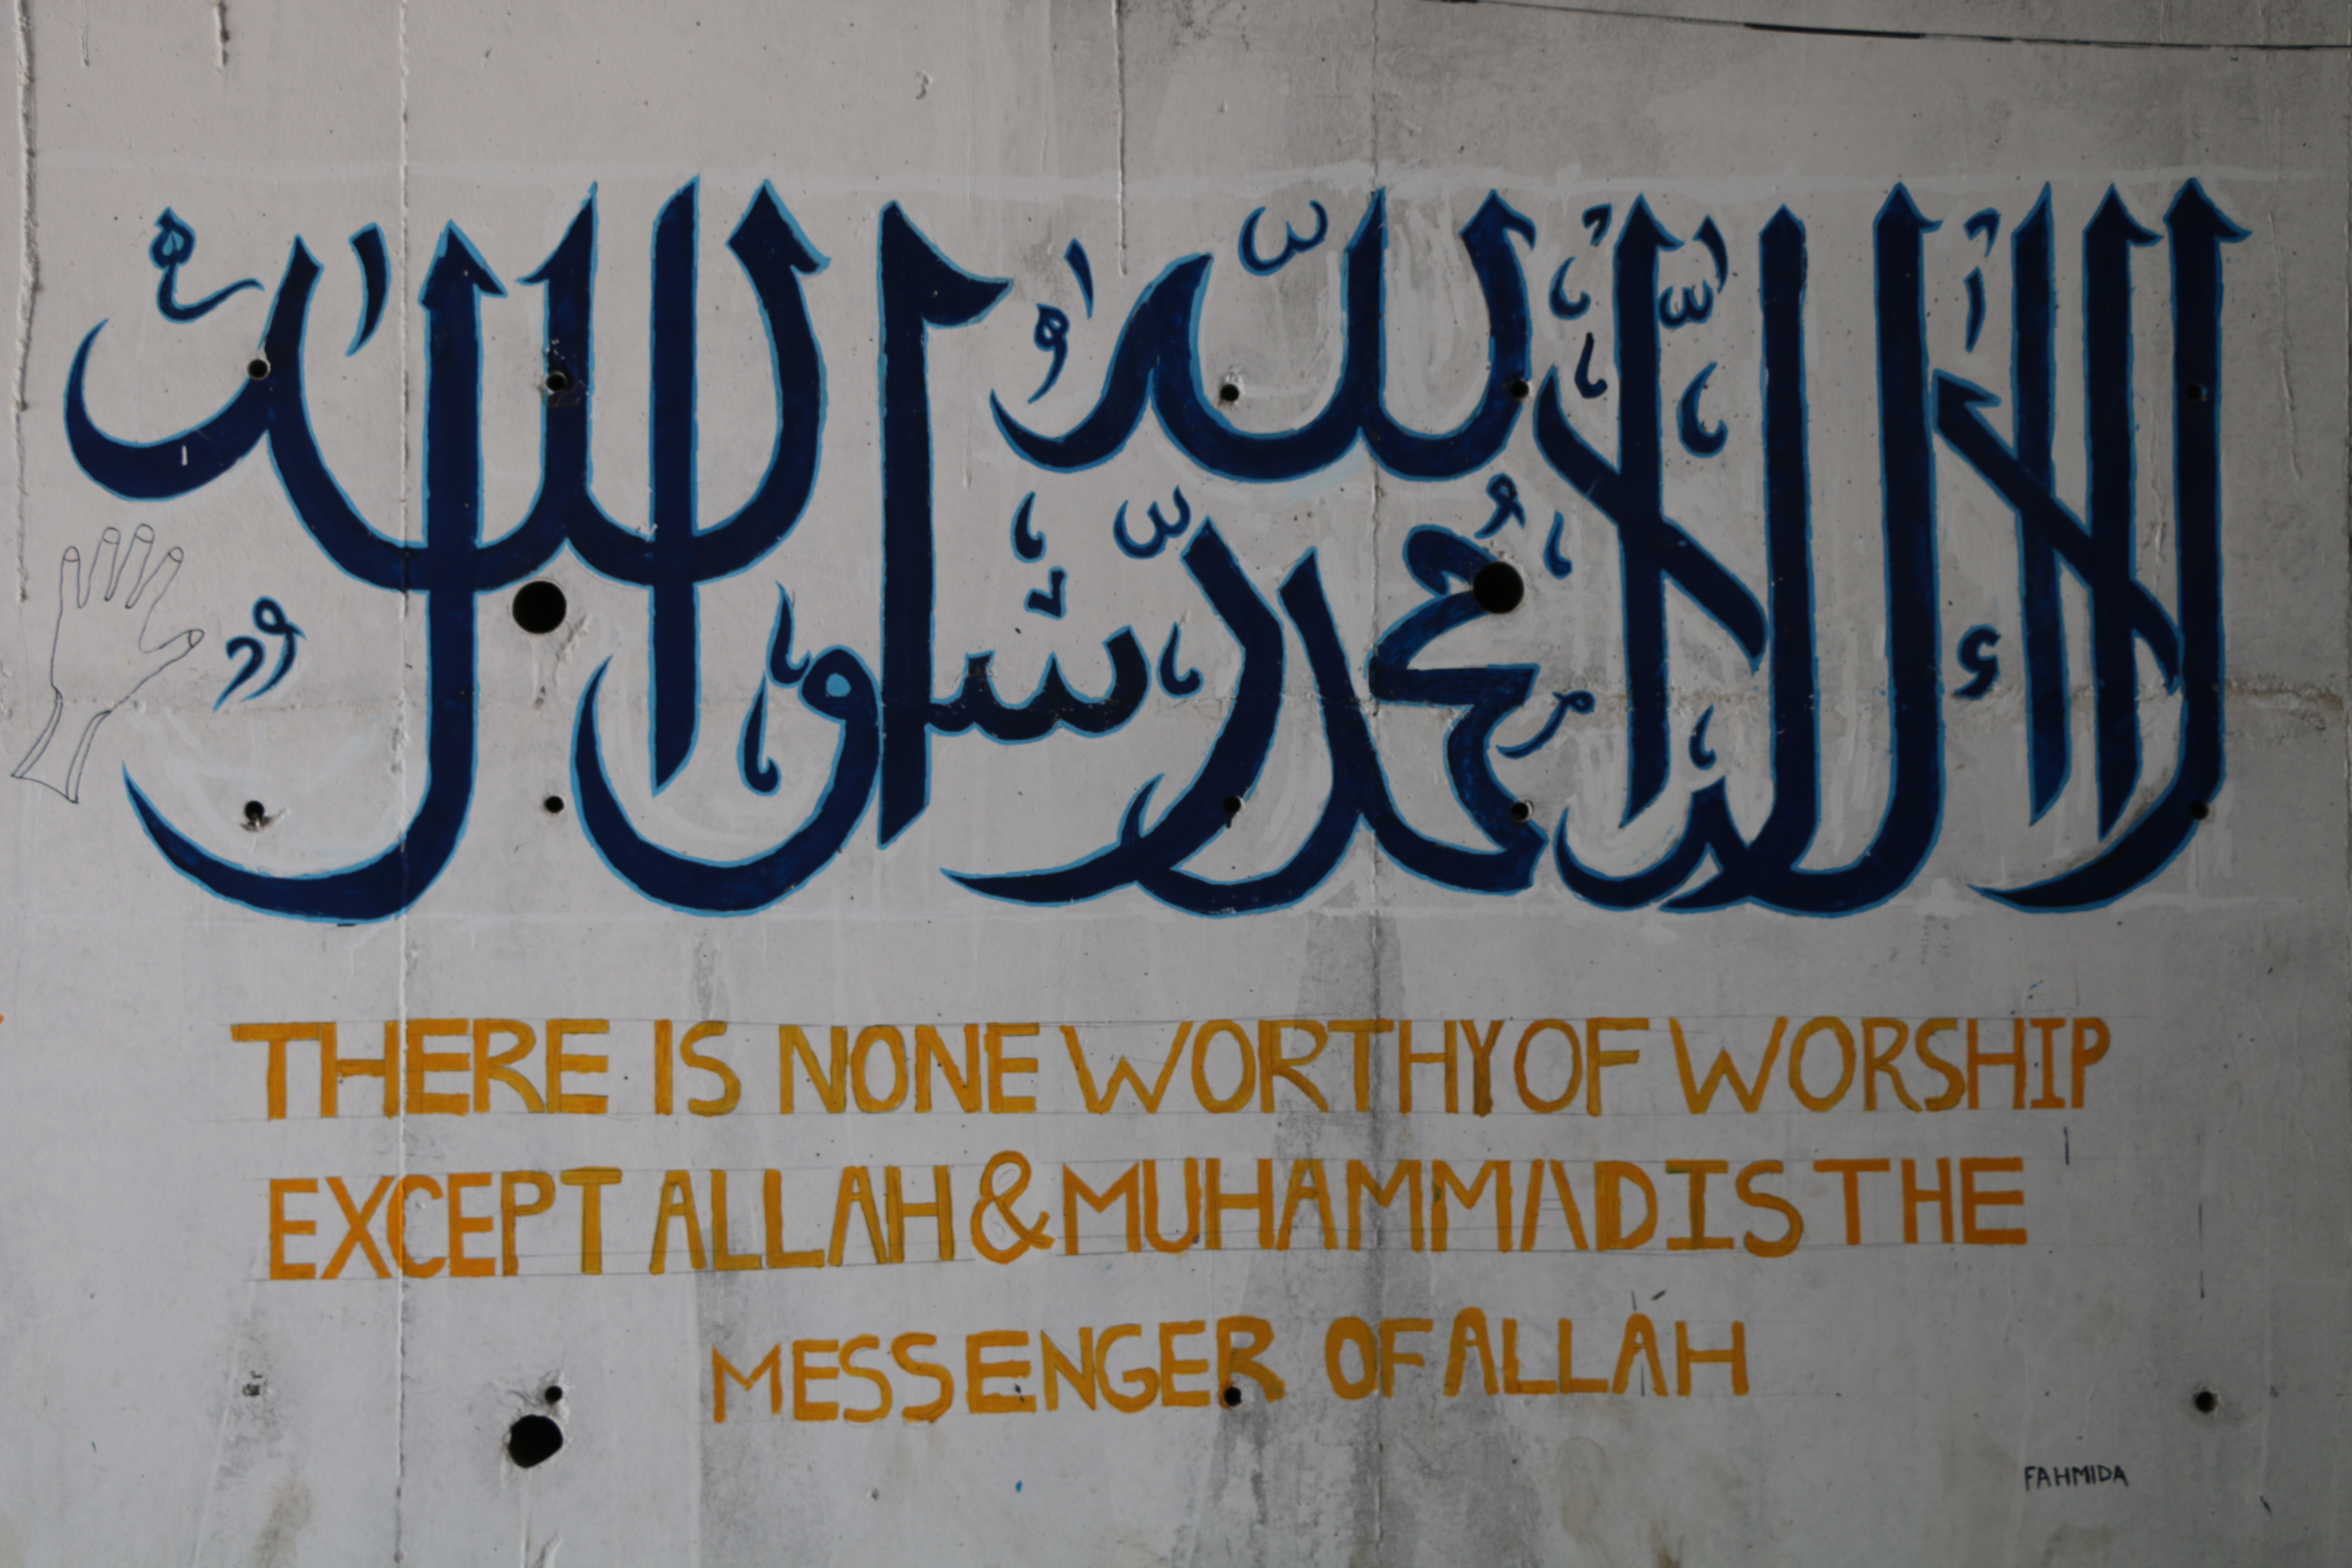 لا إله إلا الله محمد رسول الله
THERE IS NONE WORTHY OF WORSHIP
EXCEPT ALLAH & MUHAMMAD IS THE
MESSENGER OF ALLAH
FAHMIDA